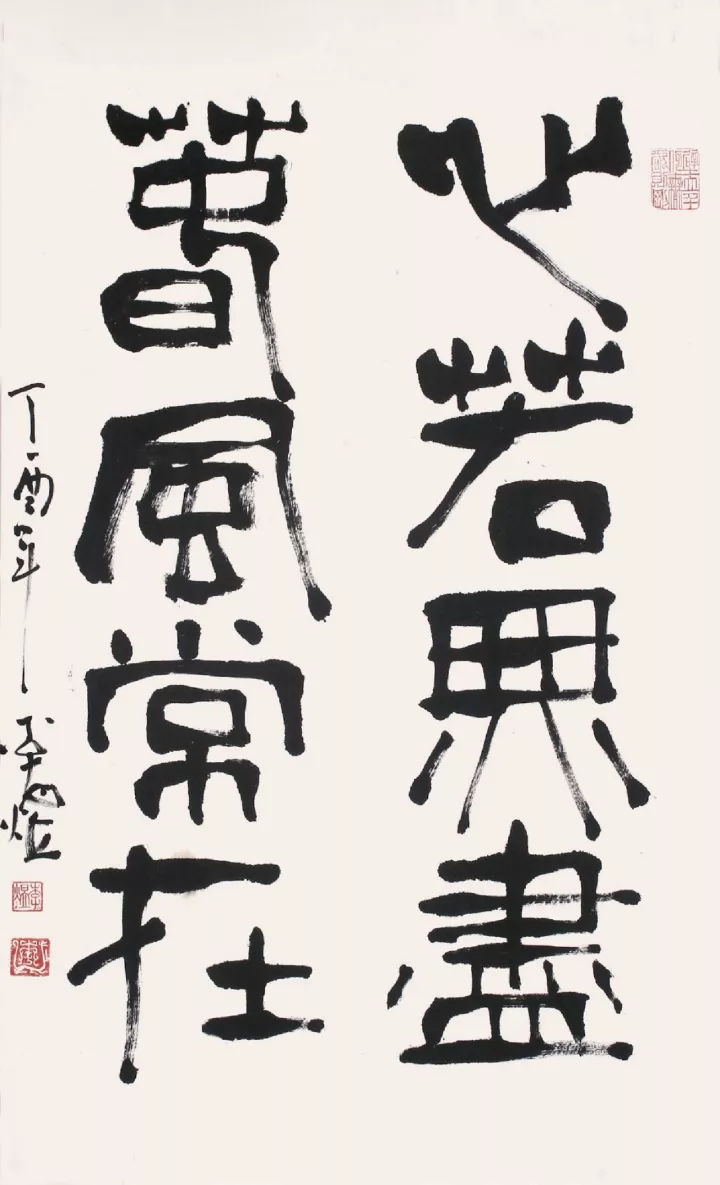 心若無盡
春風常在
丁酉年